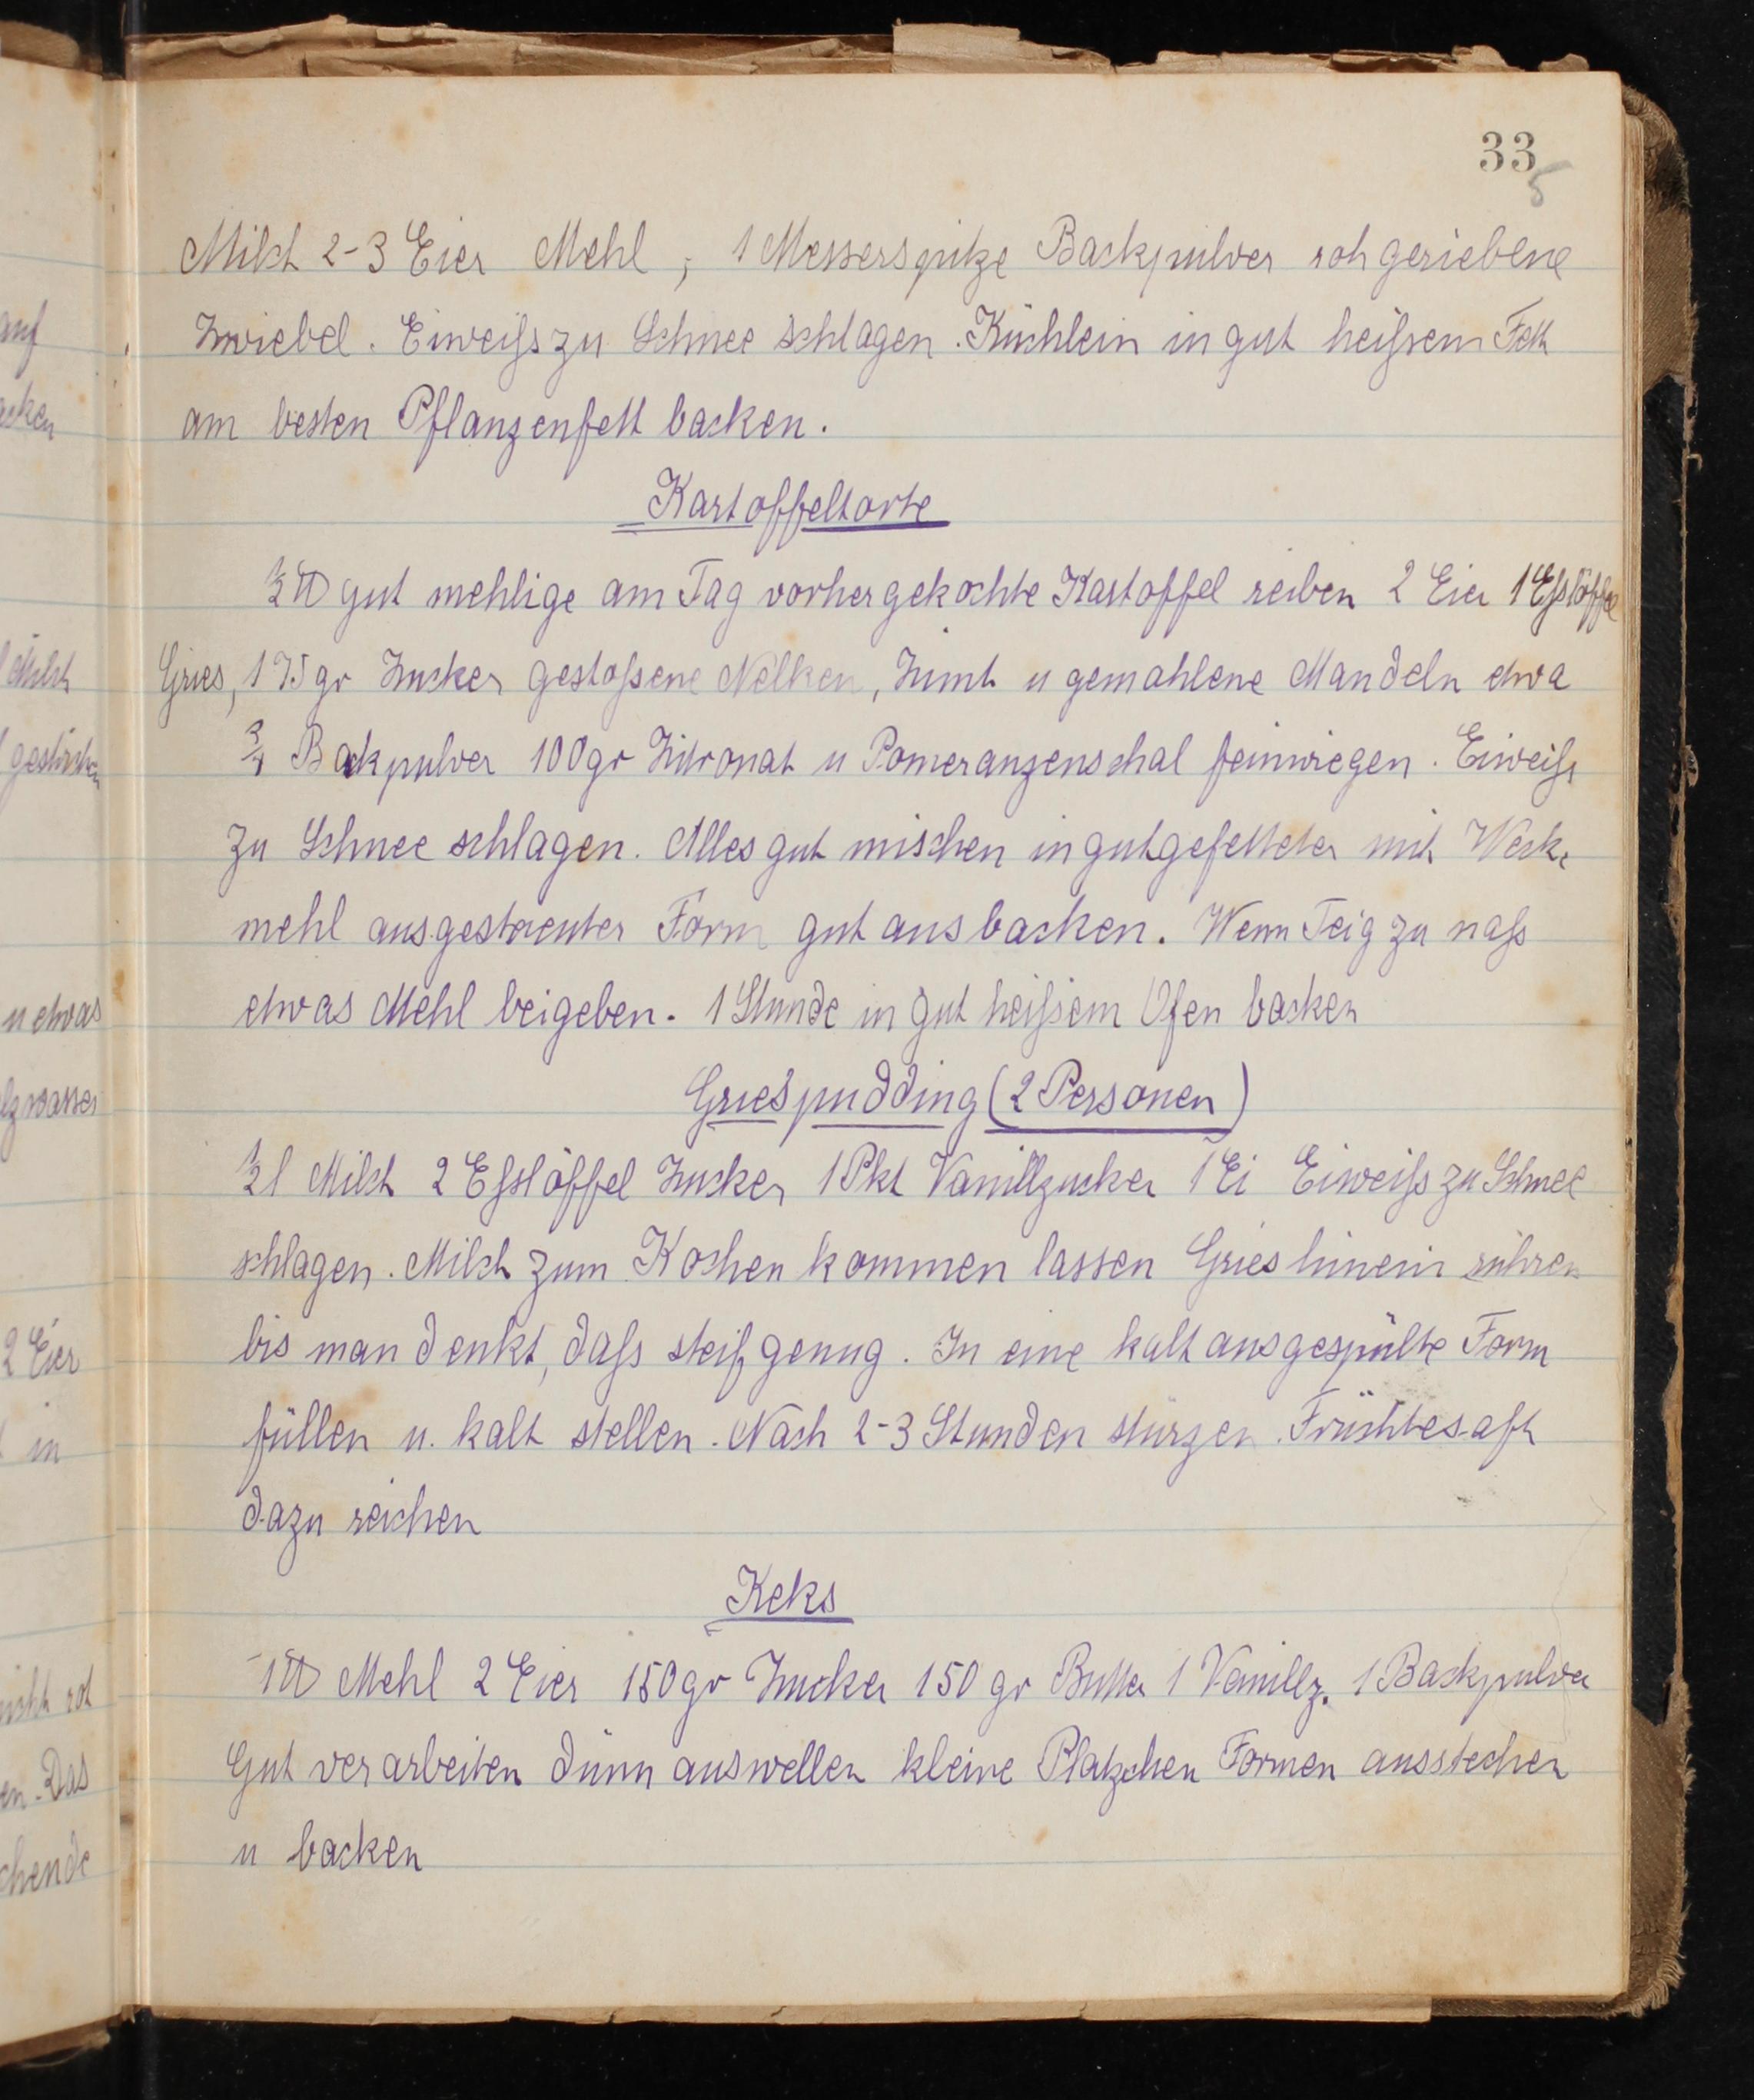 33
5
Milch 2-3 Eier Mehl, 1 Messerspitze Backpulver roh geriebene
Zwiebel. Eiweiß zu Schnee schlagen. Küchlein in gut heißem Fett
am besten Pflanzenfett backen.
Kartoffeltorte
½ ℔ gut mehlige am Tag vorher gekochte Kartoffel reiben 2 Eier 1 Eßlöffel
Gries, 175 gr Zucker gestoßene Nelken, Zimt u gemahlene Mandeln etwa
¾ Backpulver 100 gr Zitronat u Pomeranzenschal feinwiegen. Eiweiß
zu Schnee schlagen. Alles gut mischen in gutgefetteter mit Weck-
mehl ausgestreuter Form gut ausbacken. Wenn Teig zu naß
etwas Mehl beigeben. 1 Stunde in gut heißem Ofen backen
Griespudding (2 Personen)
½ l Milch 2 Eßlöffel Zucker 1 Pkt Vanillzucker 1 Ei Eiweiß zu Schnee
schlagen. Milch zum Kochen kommen lassen Gries hinein rühren
bis man denkt, daß steif genug. In eine kalt ausgespülte Form
füllen u. kalt stellen. Nach 2-3 Stunden stürzen. Früchtesaft
dazu reichen
Keks
1 ℔ Mehl 2 Eier 150 gr Zucker 150 gr Butter 1 Vanillz. 1 Backpulver
Gut verarbeiten dünn auswellen kleine Plätzchen Formen ausstechen
u backen
auf
Milch
u etwas
2 Eier
in
rot
Das